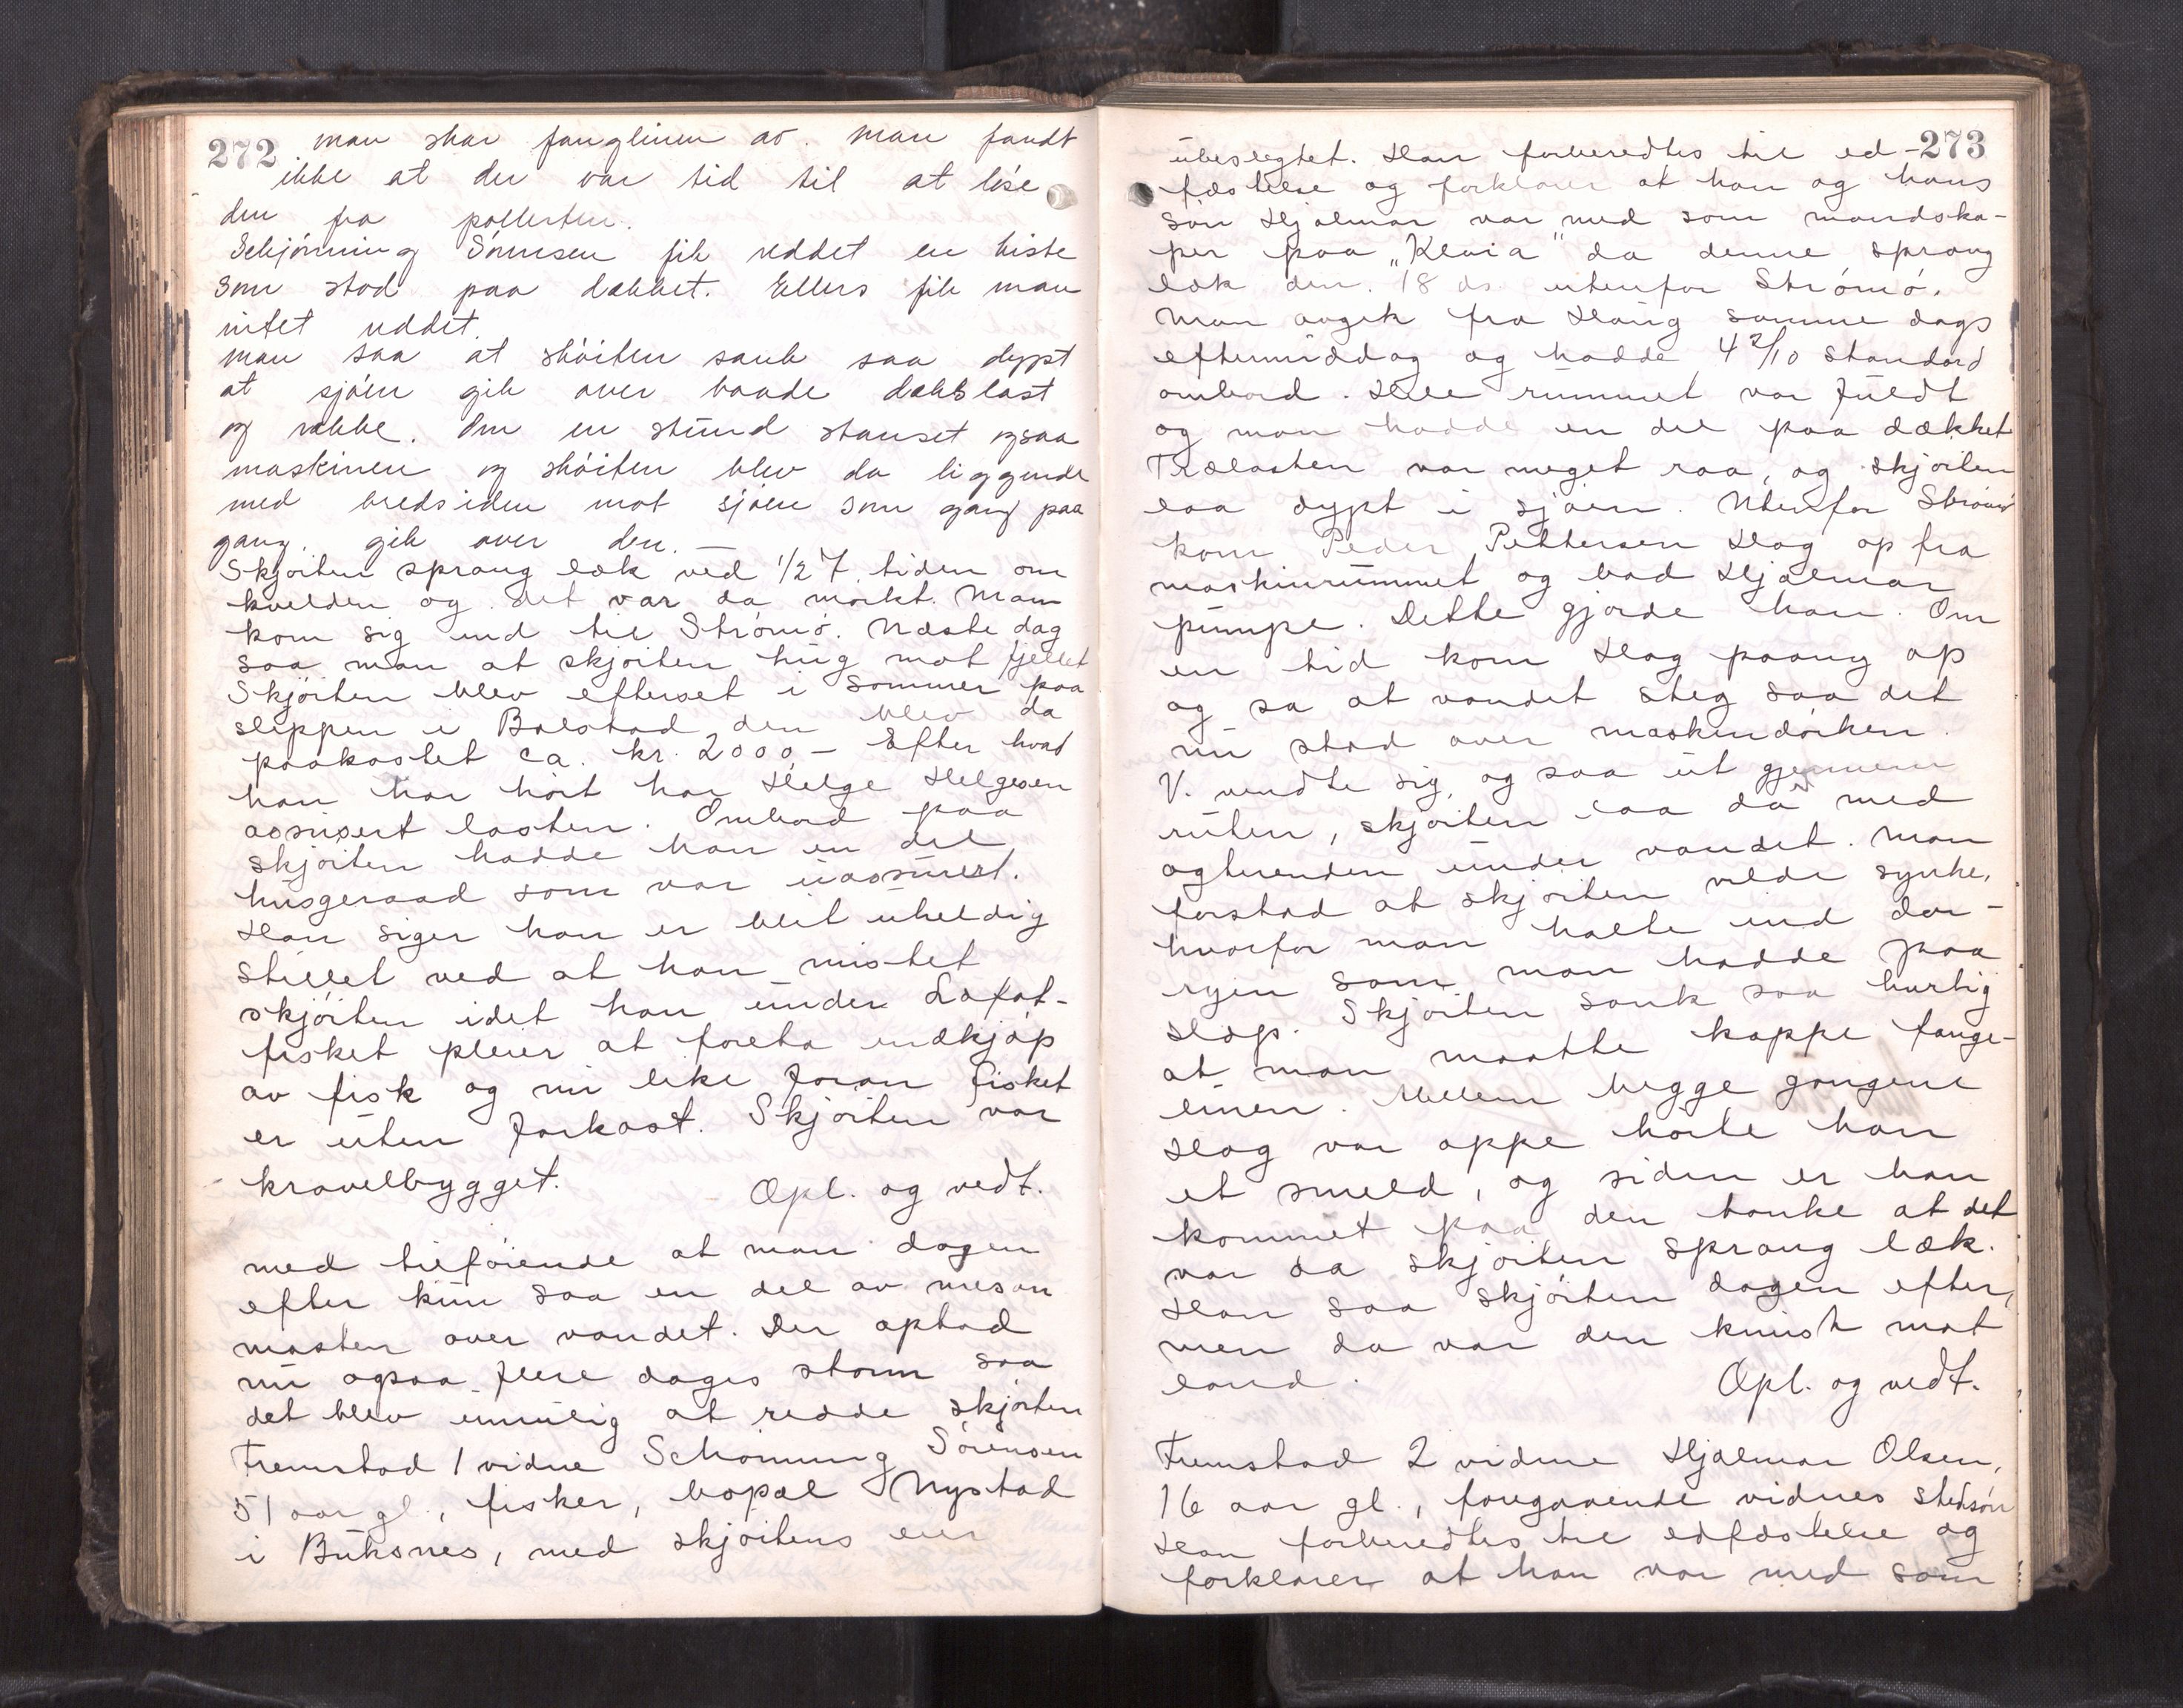 272
man skar fanglinen av. Man fandt
ikke at der var tid til at løse
den fra pollerten.
Schjønning Sørensen fik reddet en kiste
som stod paa dækket. Ellers fik man
intet reddet.
Man saa at skøiten sank saa dypt
at sjøen gik over baade dækslast
og række. Om en stund stanset ogsaa
maskinen og skøiten blev da liggende
med bredsiden mot sjøen som gang paa
gang gik over den. —
Skjøiten sprang læk ved 1/2 7 tiden om
kvelden og det var da mørkt. Man
kom sig ind til Strømø. Næste dag
saa man at skjøiten hug mot fjellet
Skjøiten blev efterset i sommer paa
slippen i Balstad den blev da
paakostet ca. kr. 2000,- Efter hvad
han har hørt har Helge Helgesen
assurert lasten. Ombord paa
skjøiten hadde han en del
husgeraad som var uassurert.
Han siger han er blit uheldig
stillet ved at han mistet
skjøiten idet han under Lofot-
fisket pleier at foreta indkjøp
av fisk og nu like foran fisket
er uten farkost. Skjøiten var
kravelbygget.
Opl. og vedt.
med tilføiende at man dagen
efter kun saa en del av mesan
masten over vandet. Der opstod
nu ogsaa flere dages storm saa
det blev umulig at redde skjøiten
Fremstod 1 vidne Schønning Sørensen
51 aar gl., fisker, bopæl Nystad
i Buksnes, med skjøitens eier
273
ubeslegtet. Han forberedtes til ed-
fæstelse og forklarer at han og hans
søn Hjalmar var med som mandska-
per paa "Klaia" da denne sprang
læk den 18 ds. utenfor Strømø.
Man avgik fra Haug samme dags
eftermiddag og hadde 4 2/10 standard
ombord. Hele rummet var fuldt
og man hadde en del paa dækket
Trælasten var meget raa, og skjøiten
laa dypt i sjøen. Utenfor Strømø
kom Peder Pettersen Hag op fra
maskinrummet og bad Hjalmar
pumpe. Dette gjorde han. Om
en tid kom Hag paany op
og sa at vandet steg saa det
nu stod over maskindørken.
V. vendte sig, og saa ut gjennem
ruten, skjøiten laa da med
agterenden under vandet. Man
forstod at skjøiten vilde synke,
hvorfor man halte ind dor-
ryen som man hadde paa
slæp. Skjøiten sank saa hurtig
at man maatte kappe fange-
linen. Mellem begge gangene
Hag var oppe hørte han
et smeld, og siden er han
kommet paa den tanke at det
var da skjøiten sprang læk.
Han saa skjøiten dagen efter,
men da var den knust mot
land.
Opl. og vedt.
Fremstod 2 vidne Hjalmar Olsen,
16 aar gl., foregaaende vidnes stedsøn
Han forberedtes til edfæstelse og
forklarer at han var med som